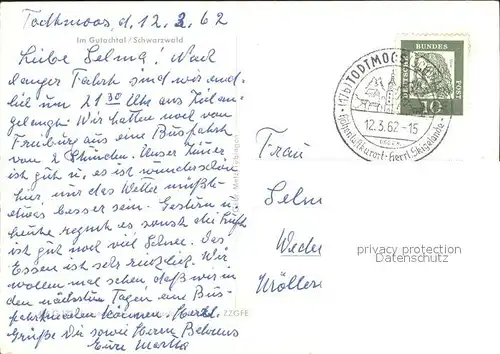 Todtmoos, d. 12.3.62
Im Gutachtal / Schwarzwald
Liebe Selma! Nach
langer Fahrt sind wir end-
lich um 21 30 Uhr
gelangt. Wir hatten noch von
Freiburg aus eine Busfahrt
von 2 Stunden. Unser Zimmer
ist gut u. es ist wunderschön
hier, nur das Wetter müßte
etwas besser sein. Gestern u.
heute regnet es, sonst die Luft
ist gut noch viel Schnee. Das
Essen ist sehr reichlich. Wir
wollen mal sehen, daß wir in
den nächsten Tagen eine Bus-
fahrt machen können. Herzl.
Grüße Dir sowie Herrn Behrens
Eure Martha
ZZGFE
(17b) TODTMOOS
12.3.62-15
Höhenluftkurort - Herrl. Skigelände
DEUTSCHE BUNDESPOST
10
Frau
Selm
Wede
Wölle
privacy protection
Datenschutz